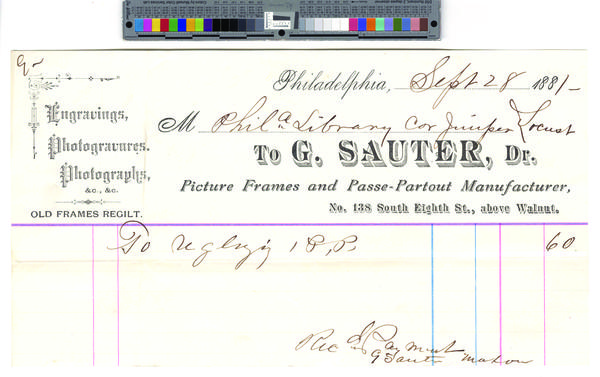 Philadelphia, Sept 28 1881-
Engravings,
Photogravures.
Photographs,
&c., &c.
OLD FRAMES REGILT.
M Phila Library cor Juniper & Locust
To G. SAUTER, Dr.
Picture Frames and Passe-Partout Manufacturer,
No. 138 South Eighth St., above Walnut.
To 1 P.P. 60
Rec d Payment
G Sauter